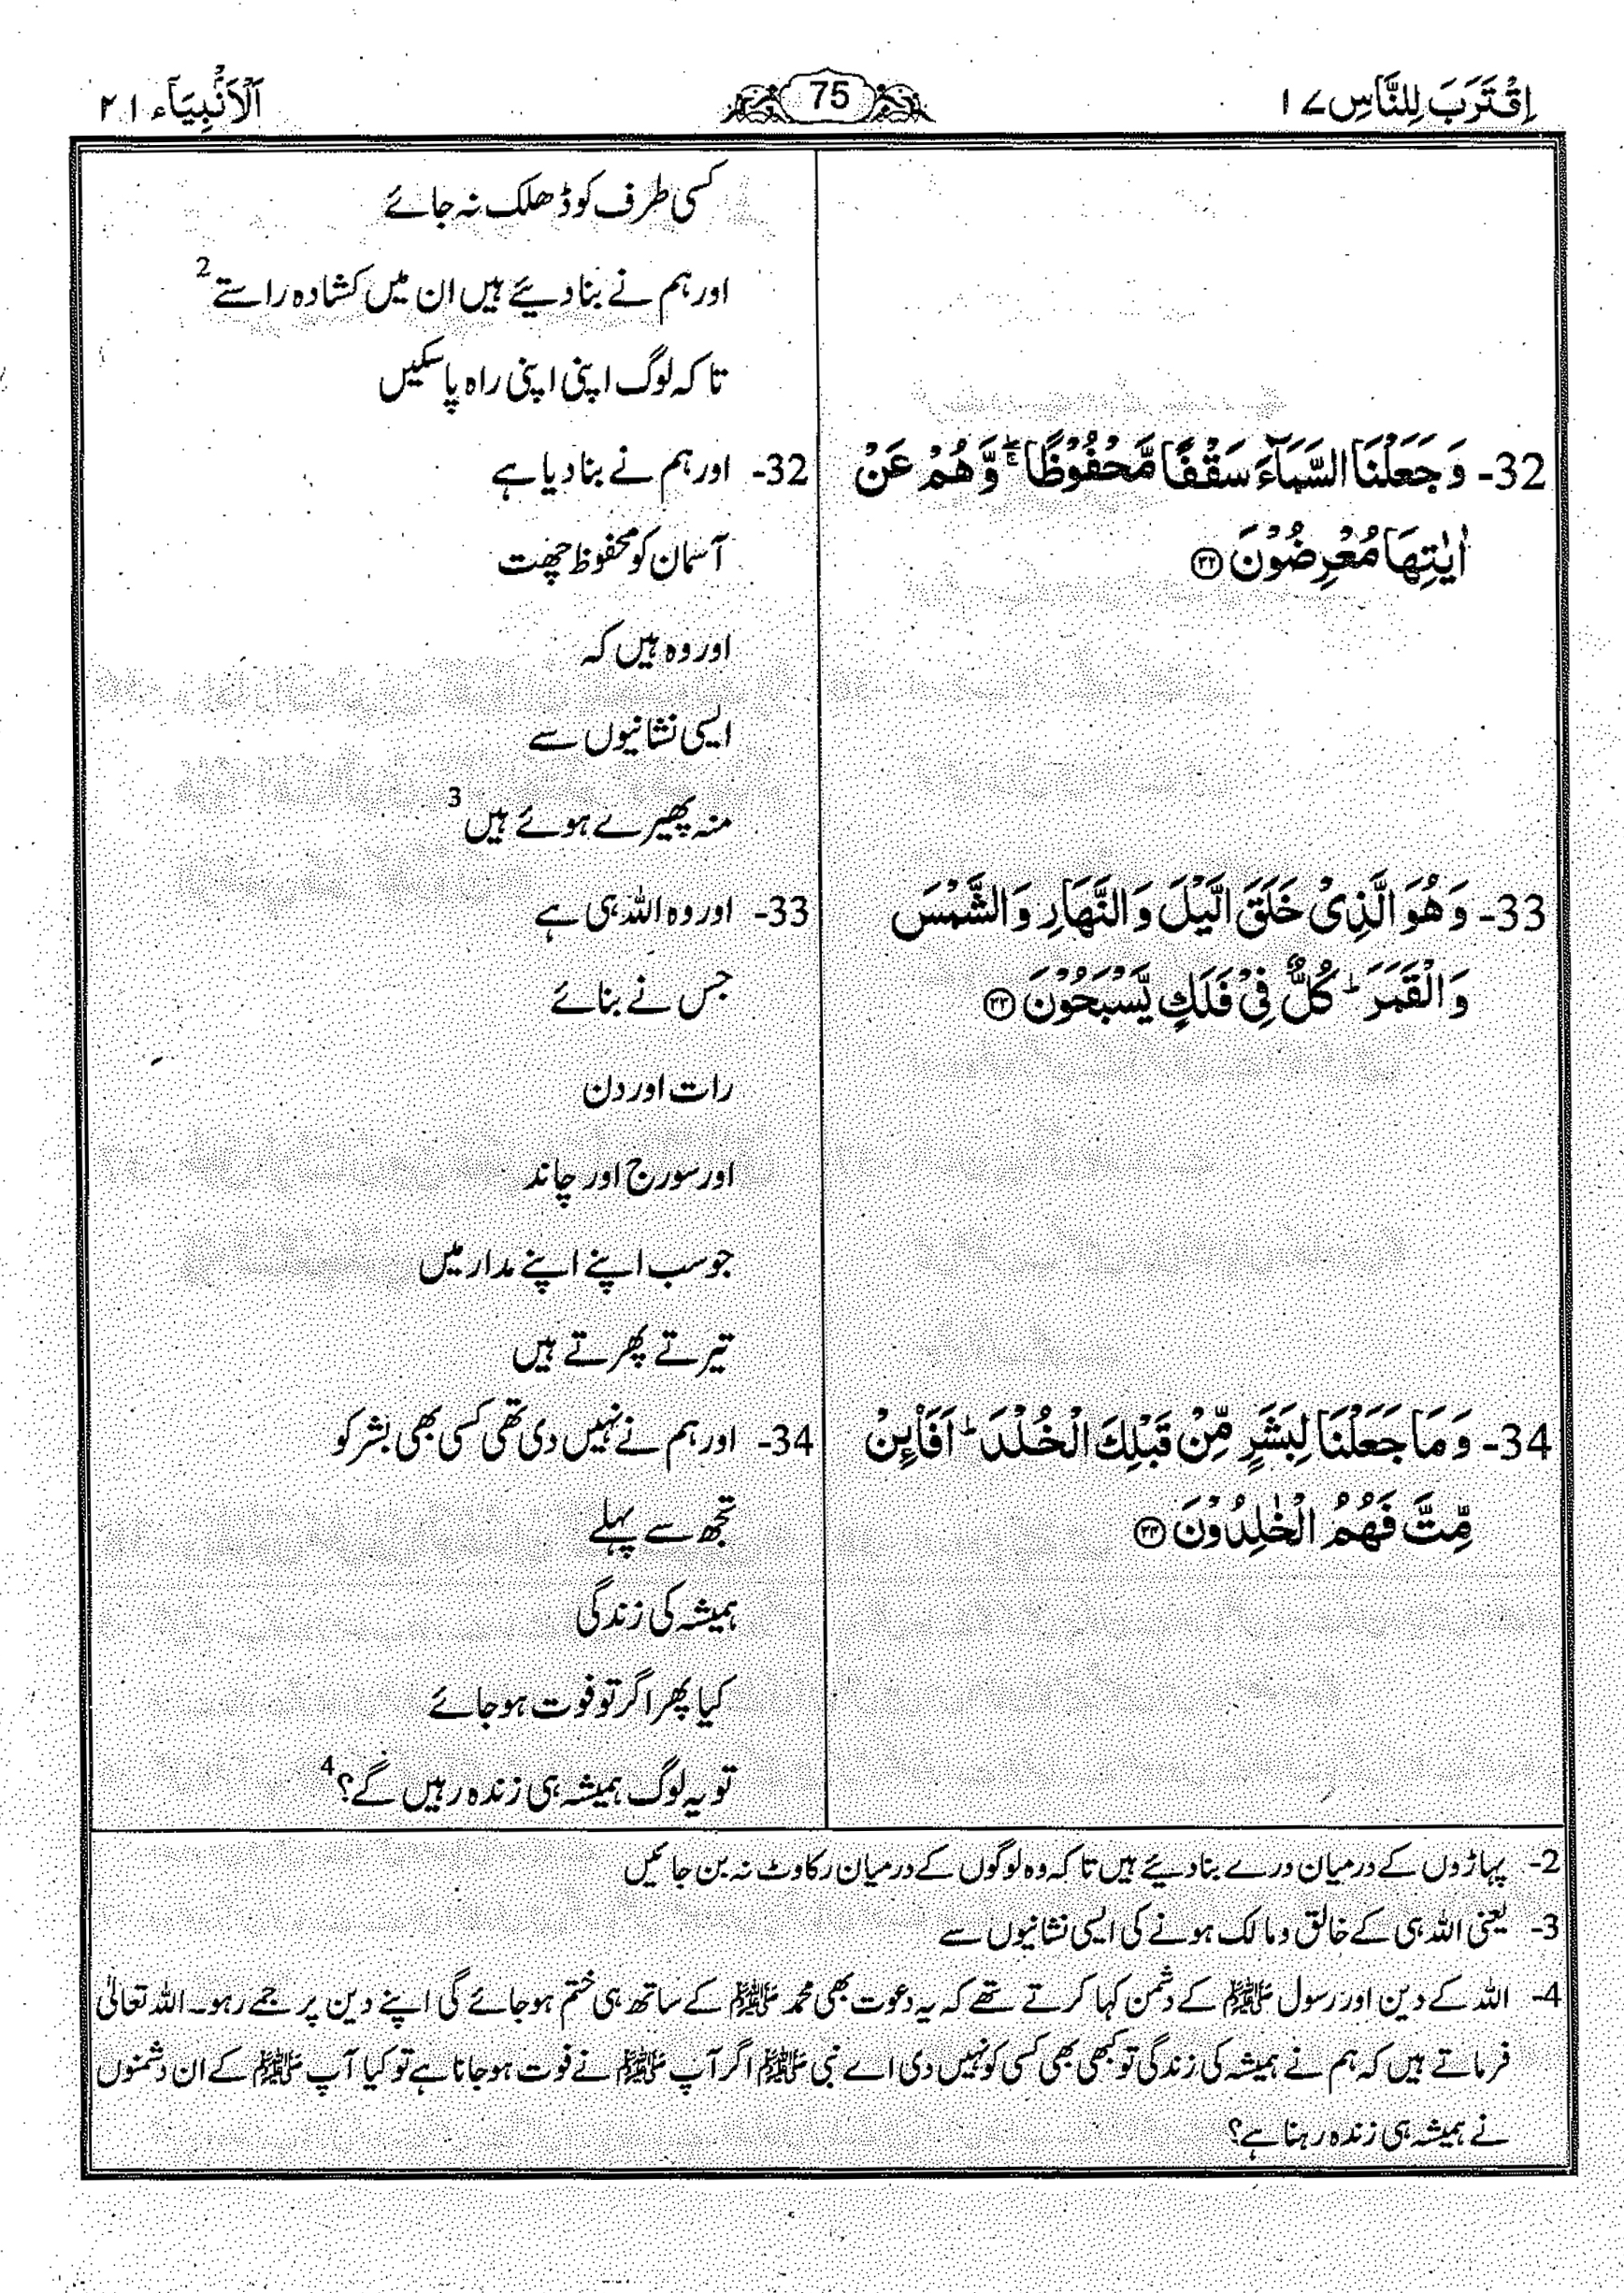 اِقْتَرَبَ لِلنَّاسِ ۱۷
75
اَلْاَنْۢبِيَآء ۲۱
کسی طرف کو ڈھلک نہ جائے
اور ہم نے بنا دیئے ہیں ان میں کشادہ راستے 2
تاکہ لوگ اپنی اپنی راہ پا سکیں
32- وَ جَعَلْنَا السَّمَآءَ سَقْفًا مَّحْفُوْظًا ۖۚ وَّ هُمْ عَنْ
اٰیٰتِهَا مُعْرِضُوْنَ ﴿۳۲﴾
32- اور ہم نے بنا دیا ہے
آسمان کو محفوظ چھت
اور وہ ہیں کہ
ایسی نشانیوں سے
منہ پھیرے ہوئے ہیں 3
33- وَ هُوَ الَّذِیْ خَلَقَ الَّیْلَ وَ النَّهَارِ وَ الشَّمْسَ
وَ الْقَمَرَ ؕ كُلٌّ فِیْ فَلَكٍ یَّسْبَحُوْنَ ﴿۳۳﴾
33- اور وہ اللہ ہی ہے
جس نے بنائے
رات اور دن
اور سورج اور چاند
جو سب اپنے اپنے مدار میں
تیرتے پھرتے ہیں
34- وَ مَا جَعَلْنَا لِبَشَرٍ مِّنْ قَبْلِكَ الْخُلْدَ ؕ اَفَا۠ىِٕنْ
مِّتَّ فَهُمُ الْخٰلِدُوْنَ ﴿۳۴﴾
34- اور ہم نے نہیں دی تھی کسی بھی بشر کو
تجھ سے پہلے
ہمیشہ کی زندگی
کیا پھر اگر تو فوت ہو جائے
تو یہ لوگ ہمیشہ ہی زندہ رہیں گے؟ 4
2- پہاڑوں کے درمیان درے بنا دیئے ہیں تاکہ وہ لوگوں کے درمیان رکاوٹ نہ بن جائیں
3- یعنی اللہ ہی کے خالق و مالک ہونے کی ایسی نشانیوں سے
4- اللہ کے دین اور رسول ﷺ کے دشمن کہا کرتے تھے کہ یہ دعوت بھی محمد ﷺ کے ساتھ ہی ختم ہو جائے گی اپنے دین پر جمے رہو۔ اللہ تعالیٰ
فرماتے ہیں کہ ہم نے ہمیشہ کی زندگی تو کبھی بھی کسی کو نہیں دی اے نبی ﷺ اگر آپ ﷺ نے فوت ہو جانا ہے تو کیا آپ ﷺ کے ان دشمنوں
نے ہمیشہ ہی زندہ رہنا ہے؟